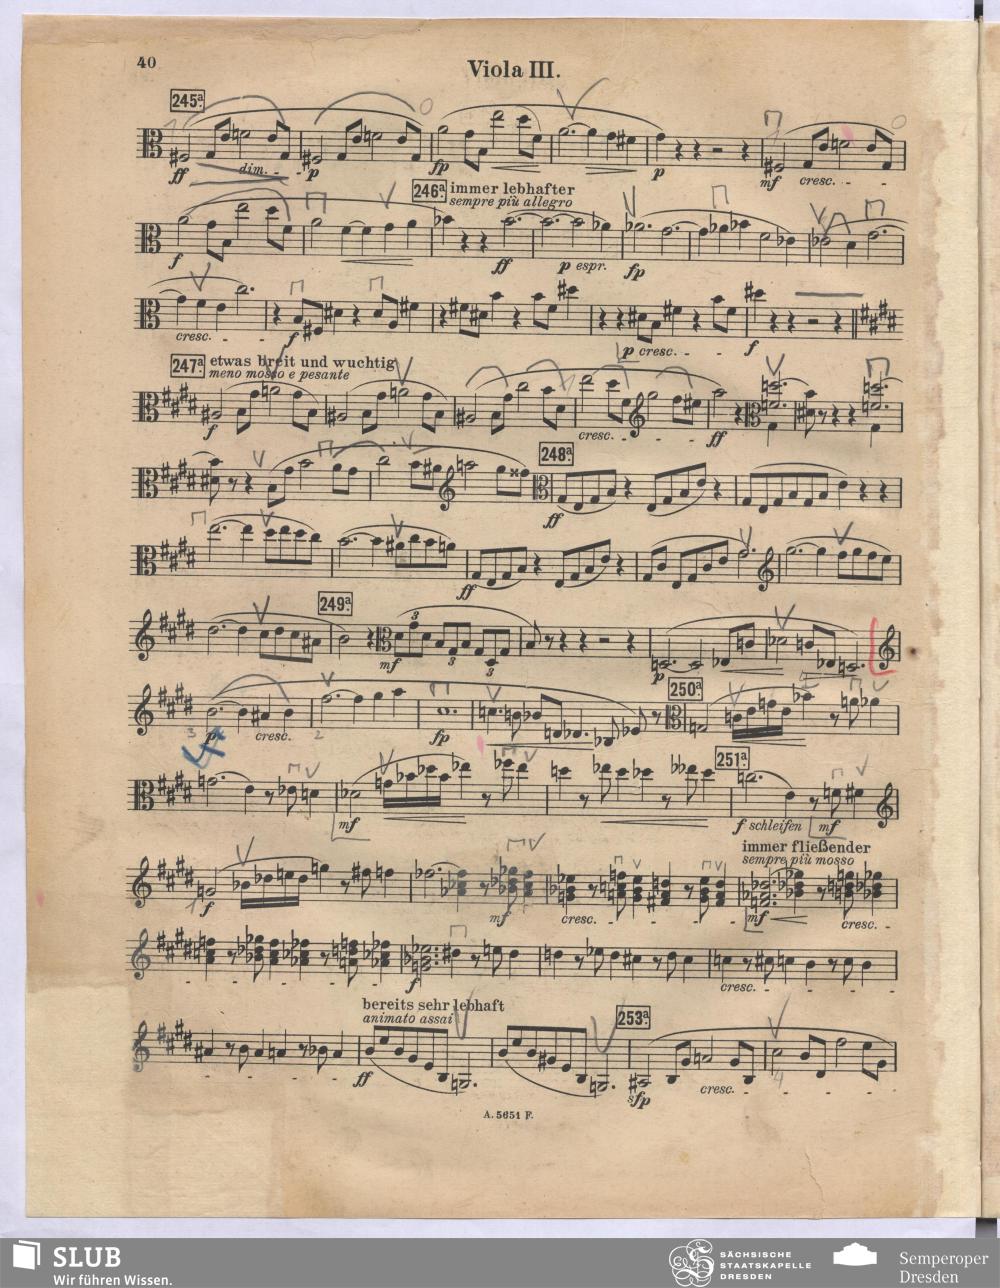 40
Viola III.
245a.
ff
dim. - -
p
fp
p
mf
cresc. - -
246a.
immer lebhafter
sempre più allegro
f
ff
p espr.
fp
cresc. - -
f
p cresc. - -
f
247a.
etwas breit und wuchtig
meno mosso e pesante
f
cresc. - - -
ff
248a.
ff
ff
249a.
3
mf
3
3
p
250a.
3
p
cresc.
2
fp
251a.
mf
f schleifen
mf
immer fließender
sempre più mosso
1
f
mf
cresc. - - -
mf
cresc. -
f
cresc. - - -
bereits sehr lebhaft
animato assai
253a.
ff
sfp
cresc. - - -
4
A. 5651 F.
SLUB
Wir führen Wissen.
SÄCHSISCHE
STAATSKAPELLE
DRESDEN
Semperoper
Dresden